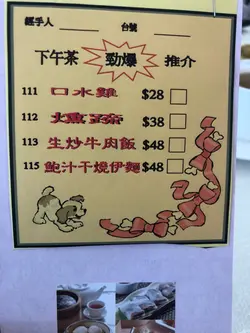 經手人 台號
下午茶 勁爆 推介
111 口水雞 $28
112 燻蹄 $38
113 生炒牛肉飯 $48
115 鮑汁干燒伊麵 $48